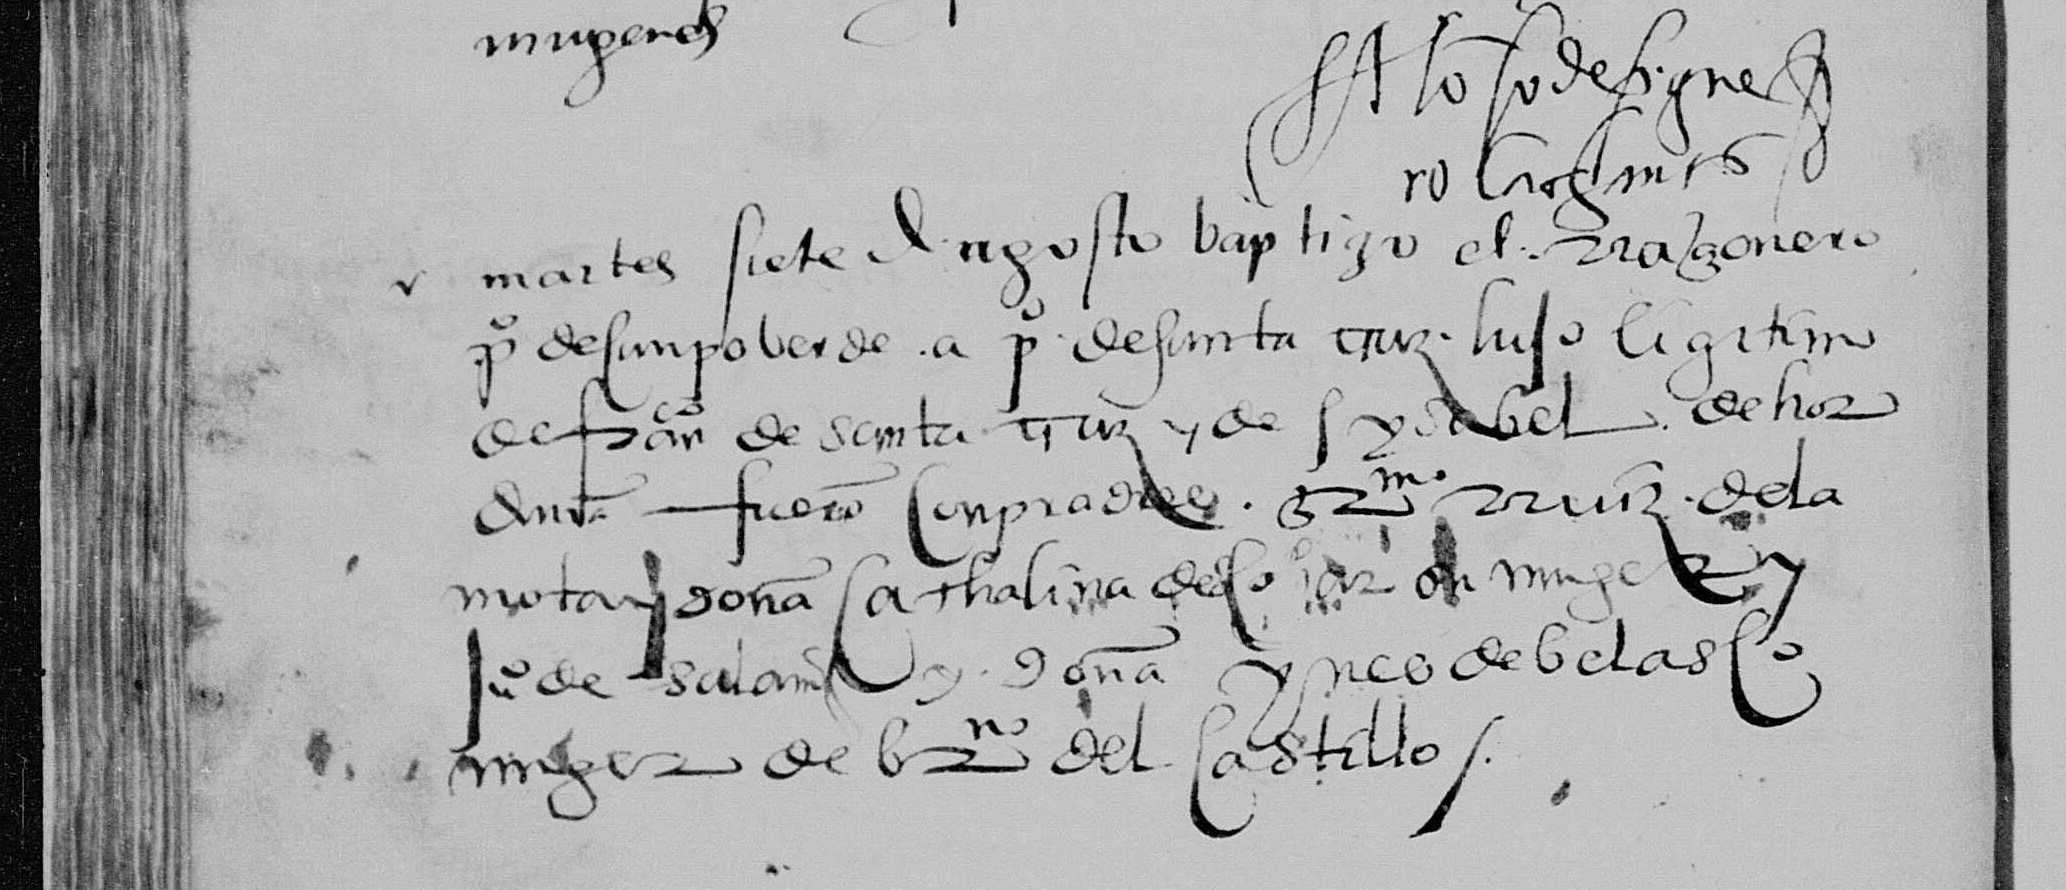 mugeres
Alo so de figue
ro
martes siete de agosto baptizo el rrazonero
p.º de sanpoberde . a p.º de santa cruz . hijo ligitimo
de fran.co de santa cruz y de ysabel . de hoz
fueron conpradres . g.mo rruiz . de la
mota y doña cathalina de su muger y
ju.º de salam y . doña ynes de belasco
muger de br.no del castillo